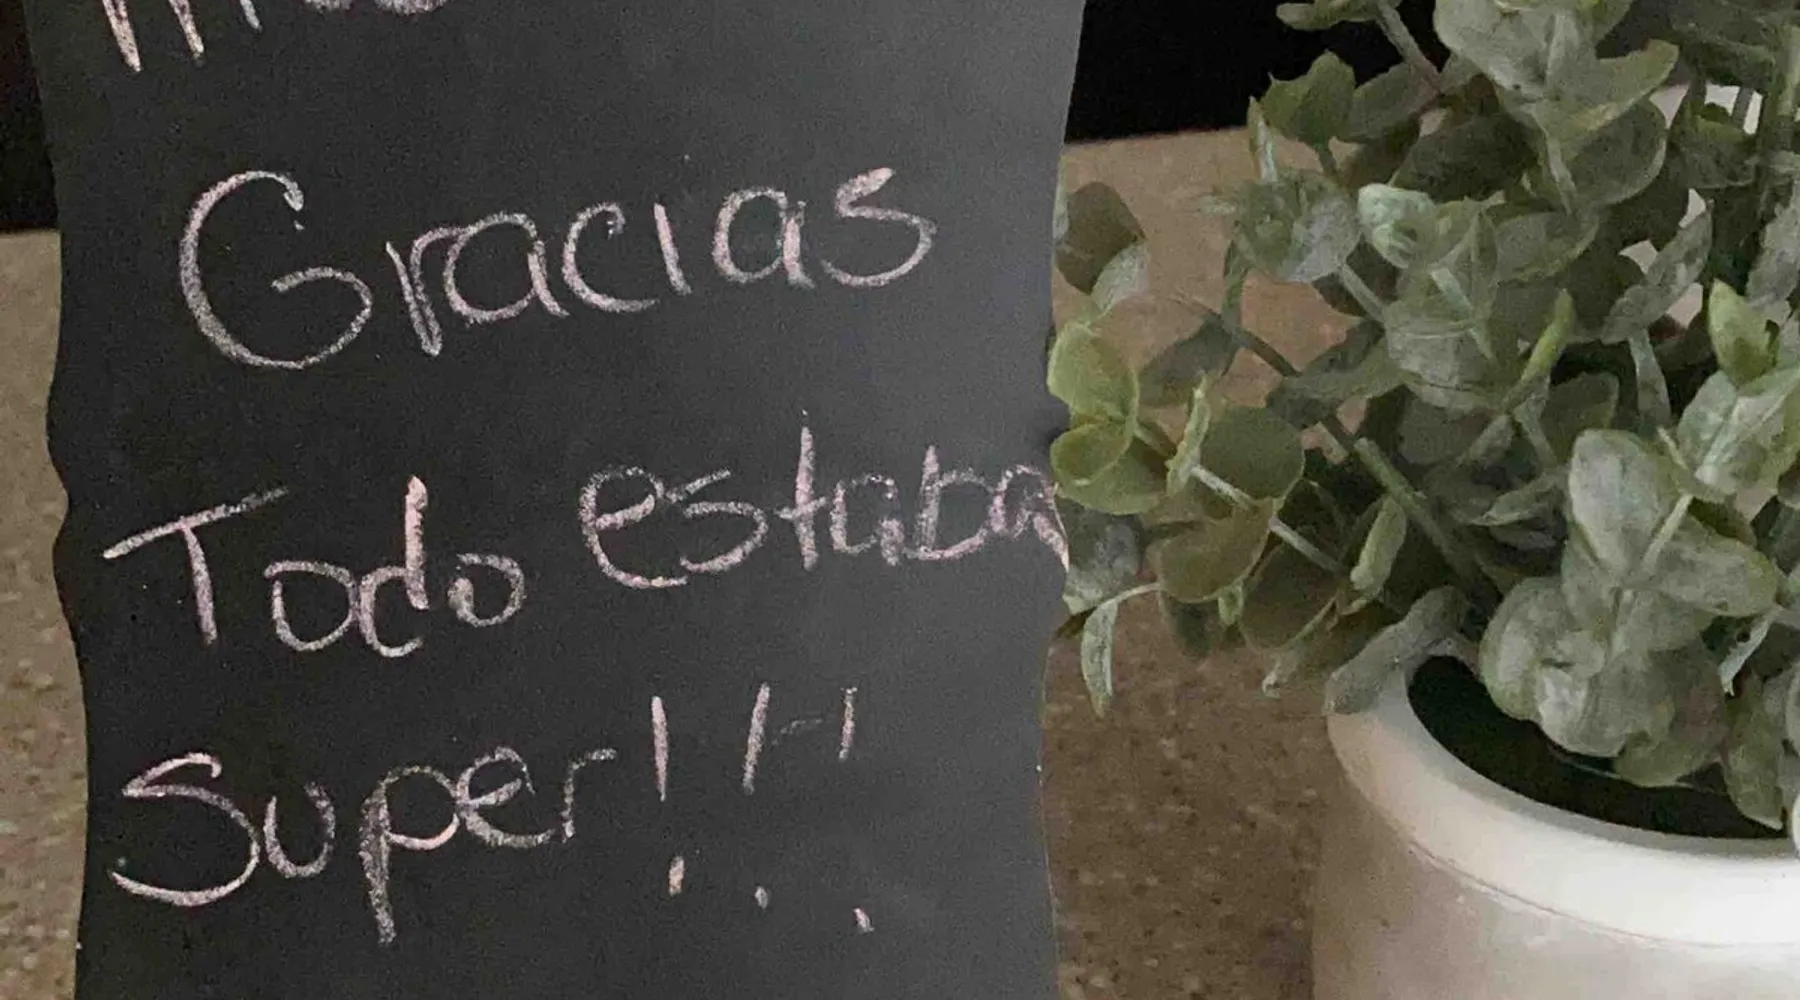 Gracias
Todo estaba
Super!!!